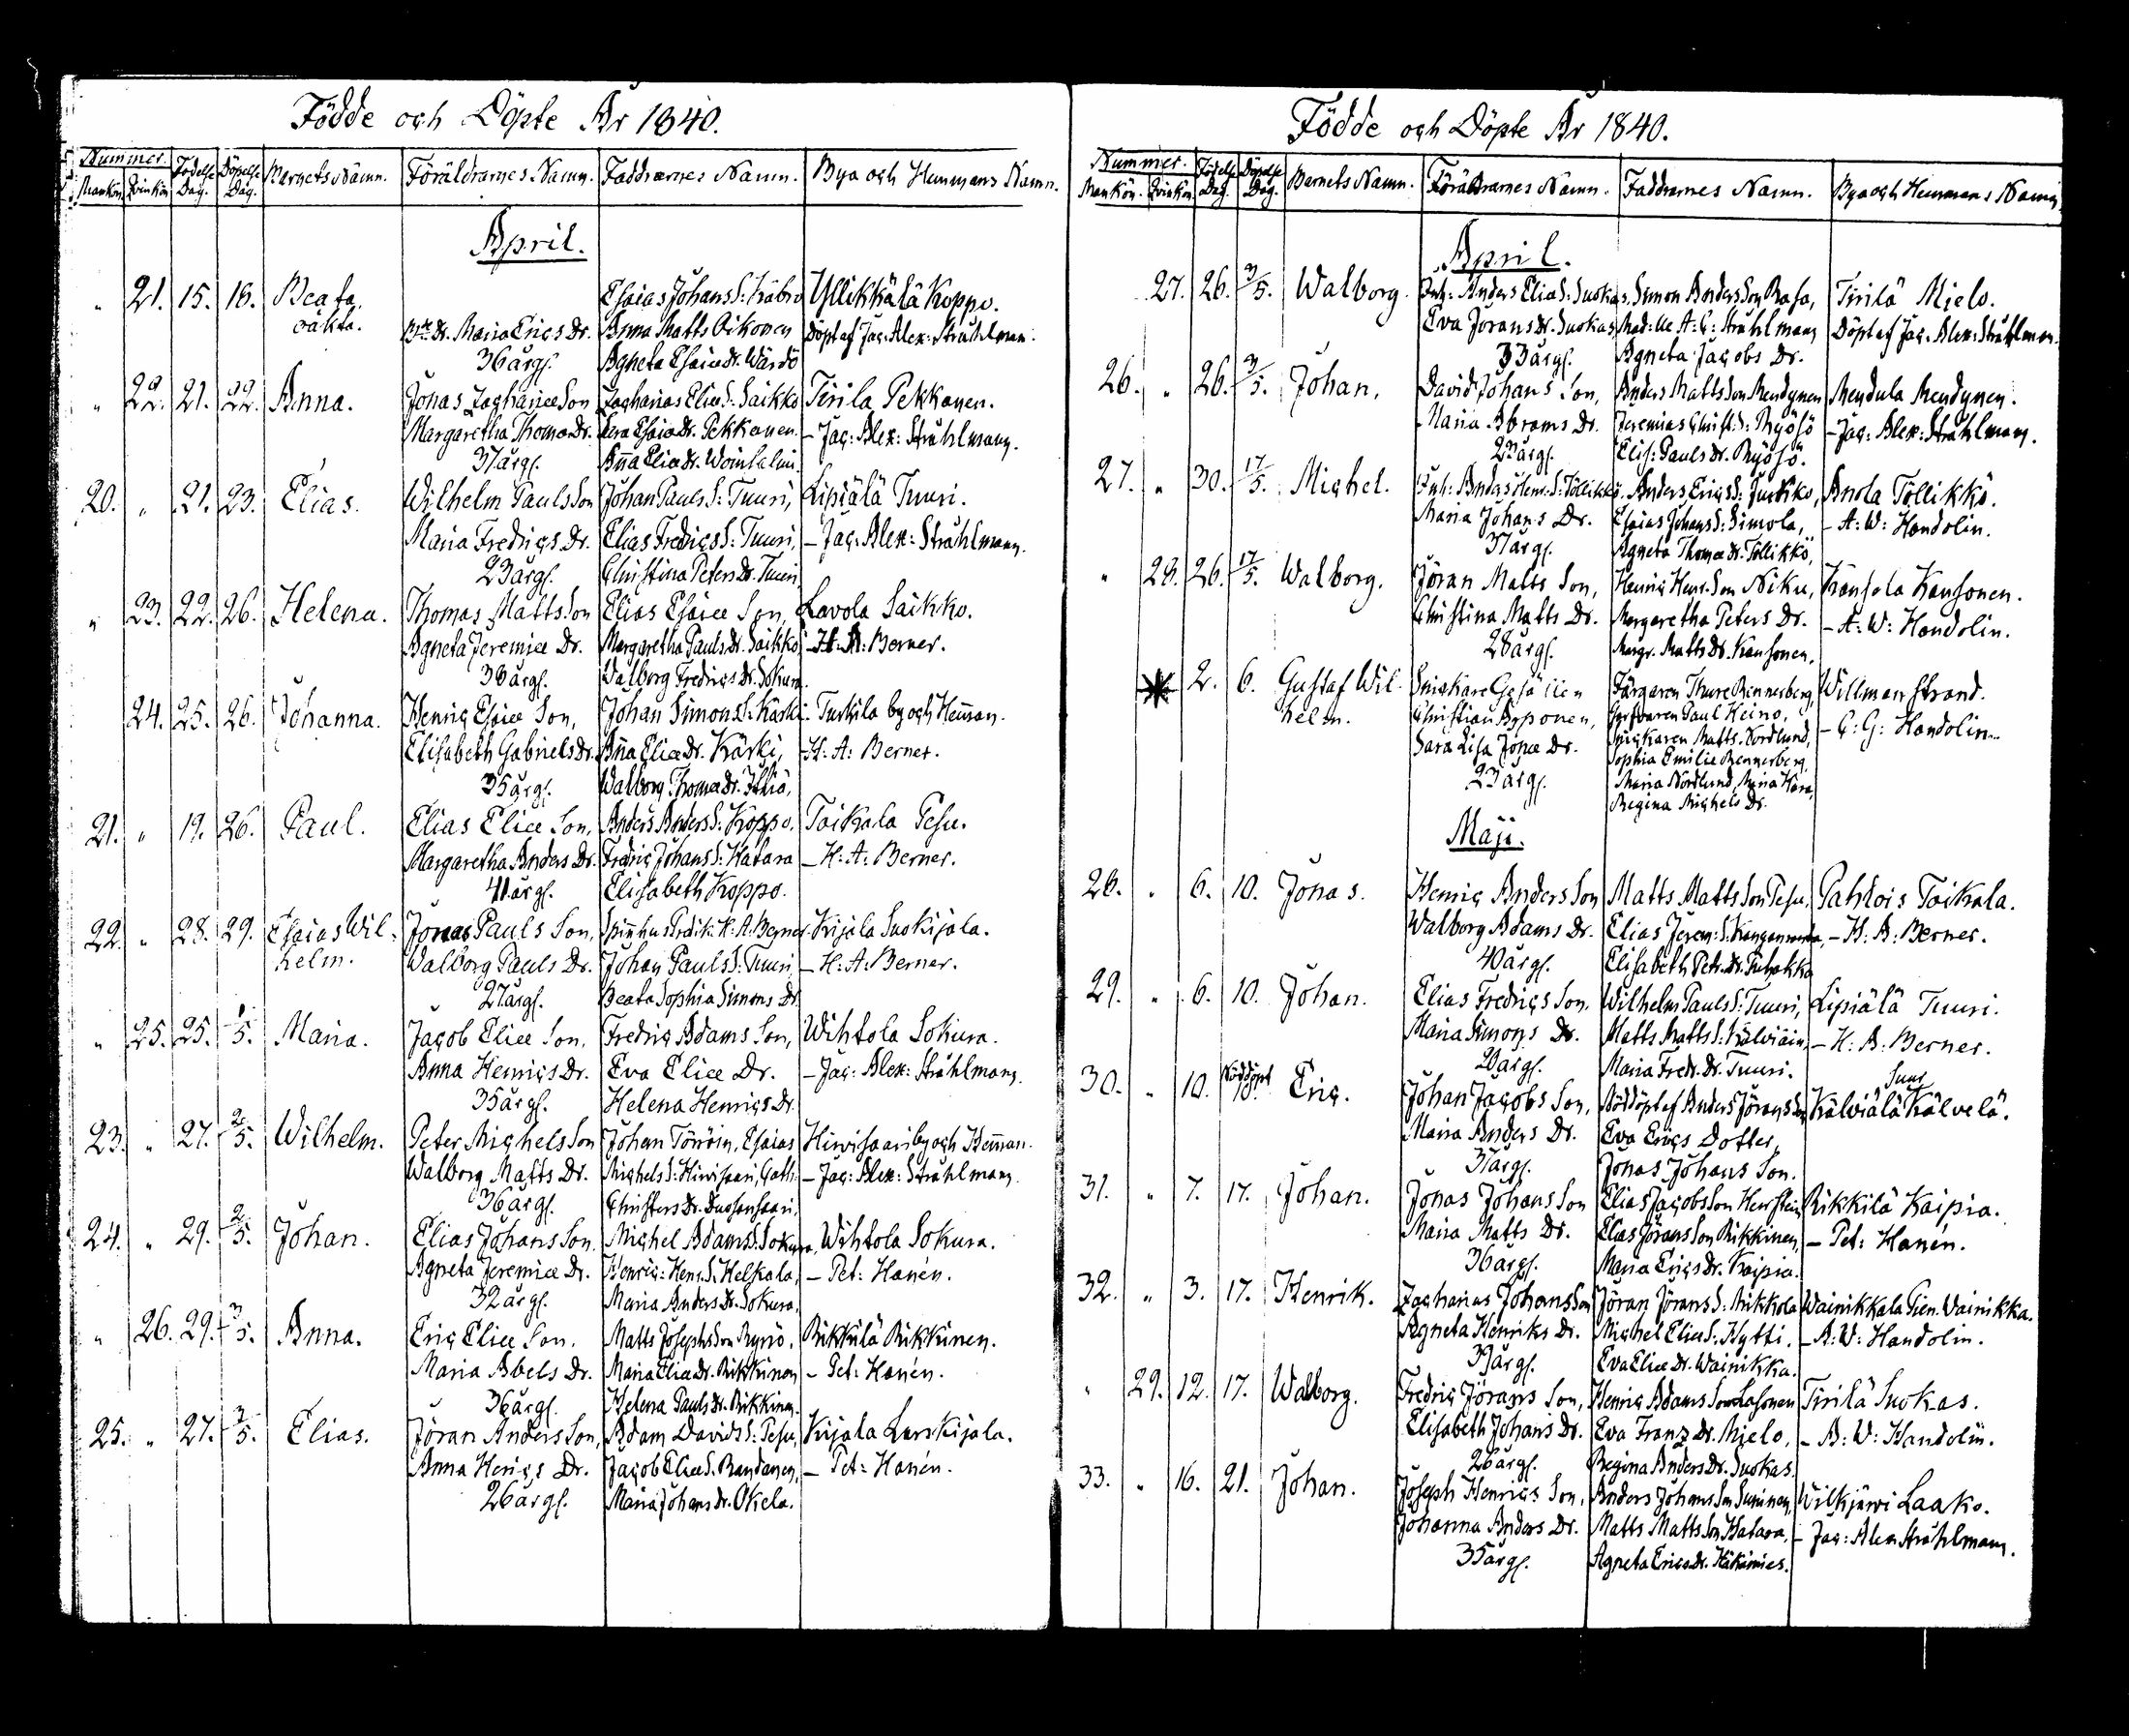 Födde och Döpte År 1840.
Nummer. Födelse Döpelse Barnets Namn. Föräldrarnes Namn. Faddrarnes Namn. Bya och Hemmans Namn.
Mankön. Qvinkön. Dag. Dag.
April.
" 21. 15. 16. Beata Esaias Johans S: Yllikkälä Koppo.
oäkta. Dr. Maria Erics Dr. Anna Matts Oikonen Döpt af Jac: Alex: Stråhlman.
36 årg. Agneta Esaiæ Dr. Wärdö
" 22. 21. 22. Anna. Jonas Zachariæ Son Zacharias Eliæ S. Saikko Tirila Pekkanen.
Margaretha Thomæ Dr. Esaiæ Dr. Pekkanen. – Jac: Alex: Stråhlmann.
37 årg. Anna Eliæ Dr. Woinsalmi
20. " 21. 23. Elias. Wilhelm Pauls Son Johan Pauls S: Tuuri, Lipiälä Tuuri.
Maria Fredrics Dr. Elias Fredrics S: Tuuri, – Jac: Alex: Stråhlmann.
23 årg. Christina Peters Dr. Tuuri
" 23. 22. 26. Helena. Thomas Matts Son Elias Esaiæ Son, Lavola Saikko.
Agneta Jeremiæ Dr. Margaretha Pauls Dr. Saikko – H: A: Berner.
36 årg. Walborg Fredrics Dr. Sokura.
24. 25. 26. Johanna. Henric Esaiæ Son, Johan Simons S: Kärki. Turkila by och Heman.
Elisabeth Gabriels Dr. Aña Eliæ Dr. Kärki, – H: A: Berner.
35 årg. Walborg Thomæ Dr.
21. " 19. 26. Paul. Elias Eliæ Son, Anders Anders S: Koppo. Toikala Pesu.
Margaretha Anders Dr. Fredric Johans S: Hatara – H: A: Berner.
41 årg. Elisabeth Koppo.
22. " 28. 29. Esaias Wil- Jonas Pauls Son, Spinnhus Predik: H. A. Berner. Kijala Suokijala.
helm. Walborg Pauls Dr. Johan Pauls S: Tuuri, – H: A: Berner.
27 årg. Beata Sophia Simons Dr.
" 25. 25. 1/5. Maria. Jacob Eliæ Son, Fredric Adams Son, Wihtola Sokura.
Anna Henrics Dr. Eva Eliæ Dr. – Jac: Alex: Stråhlmann.
35 årg. Helena Henrics Dr.
23. " 27. 2/5. Wilhelm. Peter Michels Son Johan Törröin, Esaias Hirvisaari by och Heman.
Walborg Matts Dr. Michels S: Hirvisaari, Cath: – Jac: Alex: Stråhlmann.
36 årg. Christers Dr.
24. " 29. 2/5. Johan. Elias Johans Son. Michel Adams S. Sokura, Wihtola Sokura.
Agneta Jeremiæ Dr. Henric Henr: S. Helkala, – Pet: Hanén.
32 årg. Maria Anders Dr. Sokura,
" 26. 29. 3/5. Anna. Eric Eliæ Son. Matts Josephs Son Ryyiö, Rikkilä Rikkinen.
Maria Abels Dr. Maria Eliæ Dr. Rikkinen – Pet: Hanén.
36 årg. Helena Pauls Dr. Rikkinen.
25. " 27. 3/5. Elias. Jöran Anders Son, Adam Davids S: Pesu, Kijala Kurskijala.
Anna Henrics Dr. Jacob Eliæ S. Randanen, – Pet: Hanén.
26 årg. Maria Johans Dr. Okela.
Födde och Döpte År 1840.
Nummer. Födelse Döpelse Barnets Namn. Föräldrarnes Namn. Faddrarnes Namn. Bya och Hemmans Namn.
Mankön. Qvinkön. Dag. Dag.
April.
27. 26. 3/5. Walborg. Inh: Anders Eliæ S: Suokas, Simon Anders Son Rasa, Tirilä Mielo.
Eva Jörans Dr. Suokas, Mad:lle A: C: Stråhlmann Döpt af Jac: Alex: Stråhlman.
33 årg. Agneta Jacobs Dr.
26. " 26. 3/5. Johan. David Johans Son, Anders Matts Son Mendynen Mendula Mendynen.
Maria Abrams Dr. Jeremias Christ: S: Ryösö – Jac: Alex: Stråhlmann.
23 årg. Elis: Pauls Dr. Ryösö.
27. " 30. 17/5. Michel. Inh: Anders Henr: S: Töllikkö. Anders Erics S: Junkko, Anola Töllikkö.
Maria Johans Dr. Esaias Johans S: Simola, – A: W: Handolin.
37 årg. Agneta Thomæ Dr. Töllikkö,
" 28. 26. 17/5. Walborg. Jöran Matts Son, Henric Henr: Son Niku, Kansola Kansonen.
Christina Matts Dr. Margaretha Peters Dr. – A: W: Handolin.
28 årg. Margr. Matts Dr. Kansonen,
2. 6. Gustaf Wil- Snickare Gesällen Färgaren Thure Rennerberg, Willmanstrand.
helm. Christian Apponen, Garfvaren Paul Heino, – C: G: Handolin.
Sara Lisa Jonæ Dr. Snickaren Matts Nordlund,
23 årg. Sophia Emilie Rennerberg,
Maria Nordlund, Maria Hara,
Regina Michels Dr.
Maji.
28. " 6. 10. Jonas. Henric Anders Son Matts Matts Son Pesu, Pahlois Toikala.
Walborg Adams Dr. Elias Jerem: S: – H: A: Berner.
40 årg. Elisabeth Petr. Dr. Puhakka
29. " 6. 10. Johan. Elias Fredrics Son, Wilhelm Pauls S: Tuuri, Lipiälä Tuuri.
Maria Simons Dr. Matts Matts S: Kälviäin, – H: A: Berner.
29 årg. Maria Fredr. Dr. Tuuri.
30. " 10. Nöddöpt 10. Eric. Johan Jacobs Son, Nöddöpt af Anders Jörans Son Suur Kälviälä Kälvelä.
Maria Anders Dr. Eva Erics Dotter,
37 årg. Jonas Johans Son.
31. " 7. 17. Johan. Jonas Johans Son Elias Jacobs Son Rikkilä Kaipia.
Maria Matts Dr. Elias Jörans Son Rikkinen, – Pet: Hanén.
36 årg. Maria Erics Dr. Kaipia.
32. " 3. 17. Henrik. Zacharias Johans Son Jöran Jörans S: Mikkola Wainikkala Pien. Wainikka.
Agneta Henriks Dr. Michel Eliæ S: Hytti. – A: W: Handolin.
39 årg. Eva Eliæ Dr. Wainikka.
" 29. 12. 17. Walborg. Fredric Jörans Son, Henric Adams Son Lasonen Tirilä Suokas.
Elisabeth Johans Dr. Eva Franz Dr. Mielo, – A: W: Handolin.
26 årg. Regina Anders Dr. Suokas.
33. " 16. 21. Johan. Joseph Henrics Son, Anders Johans Son Suninen, Wilkjärvi Laako.
Johanna Anders Dr. Matts Matts Son Hatara, – Jac: Alex Stråhlmann.
35 årg. Agneta Erics Dr. Häkämies.